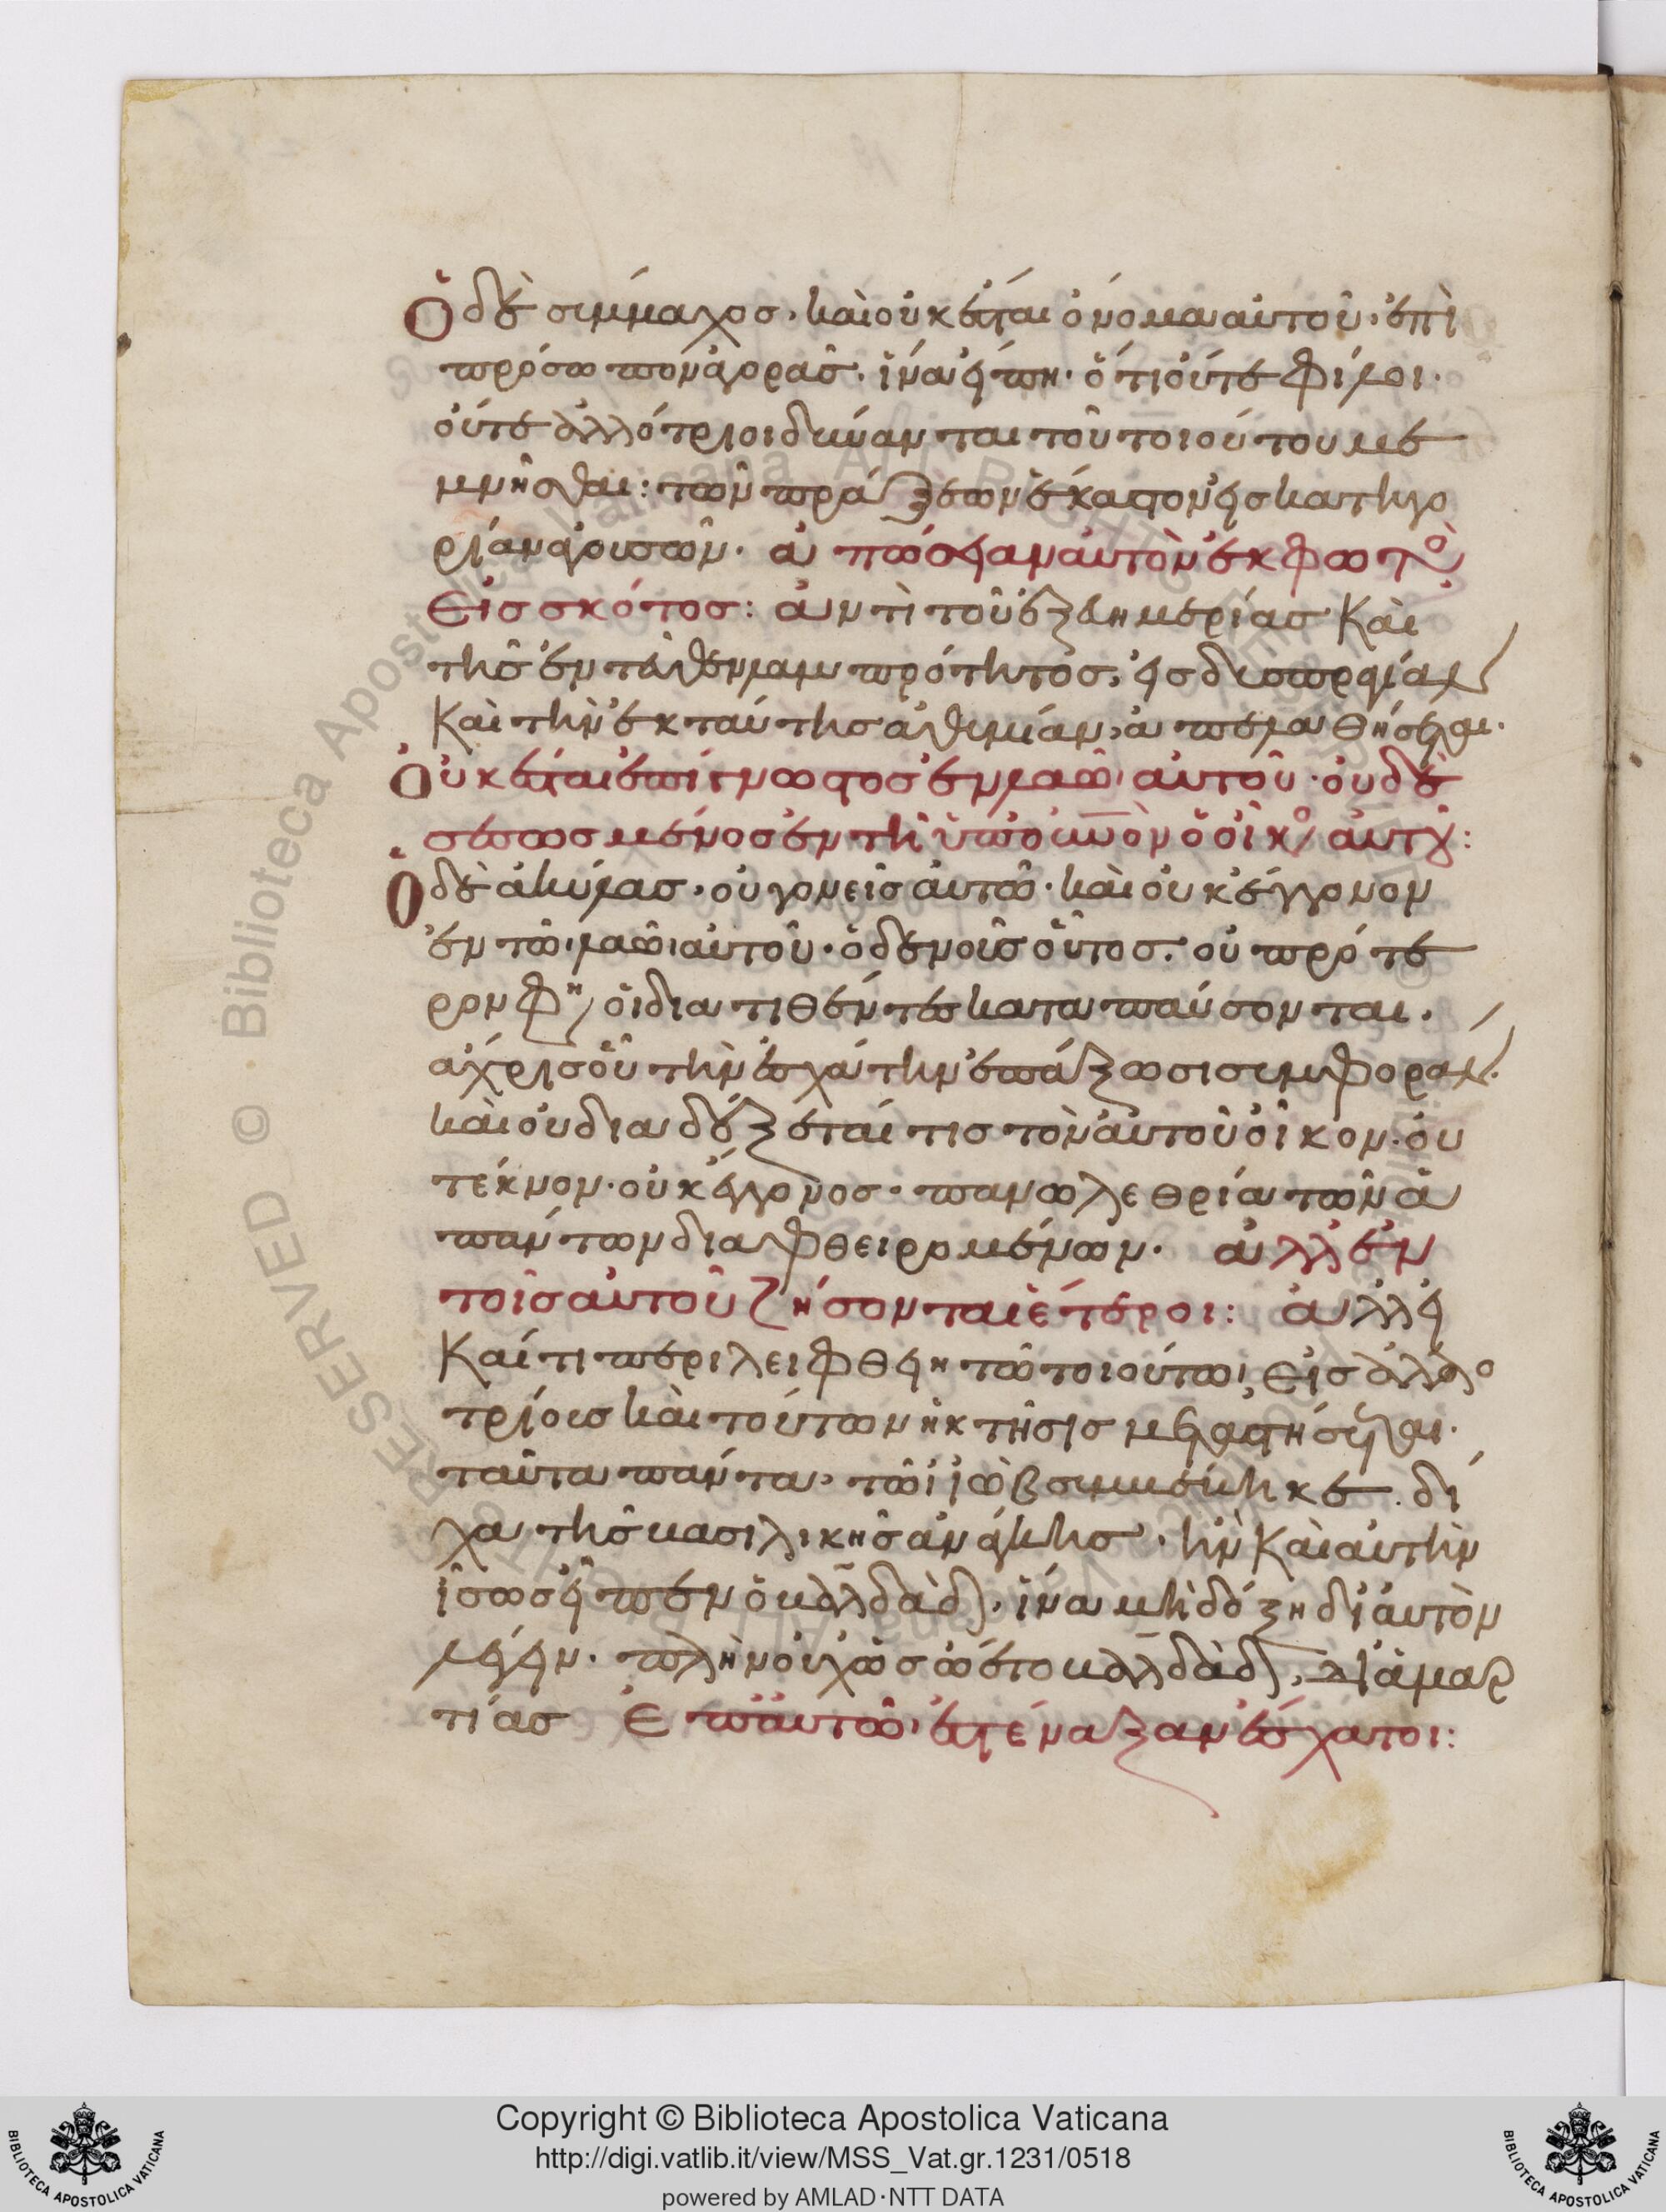 Ὁ δὲ σύμμαχος· καὶ οὐκ ἔσται ὄνομα αὐτοῦ· ἐπὶ
πρόσωπον ἀγορᾶς· ἵν' εἴπη· ὅτι οὔτε φίλοι·
οὔτε ἀλλότριοι δύνανται τοῦ τοιούτου με
μνῆσθαι: τῶν πράξεων ἕκαστον εἰς κατηγο
ρίαν ἀγουσῶν· ἀπώσειαν αὐτὸν ἐκ φωτὸς
εἰς σκότος: ἀντὶ τοῦ ἐξ εὐημερίας καὶ
τῆς ἐντεῦθεν λαμπρότητος, εἰς δυσπραγίαν
καὶ τὴν ἐκ ταύτης ἀθυμίαν, ἀπελαθήσεται·
Οὐκ ἔσται ἐπίγνωστος ἐν λαῶ αὐτοῦ· οὐδὲ
σεσωσμένος ἐν τῆ ὑπ' οὐνὸν ὁ οἶκος αὐτοῦ:
Ὁ δὲ ἀκύλας· οὐ γονεῖς αὐτῶ· καὶ οὐκ ἔγγονον
ἐν τῶ λαῶ αὐτοῦ· ὁ δὲ νοῦς οὗτος· οὐ πρότε
ρον φη οἱ διατιθέντες καταπαύσονται·
ἄχρις οὗ τὴν ἐσχάτην ἐπάξωσι συμφοράν·
καὶ οὐ διαδέξεταί τις τὸν αὐτοῦ οἶκον· οὐ
τέκνον· οὐκ ἔγγονος· πανωλεθρία τῶν ἁ
πάντων διαφθειρομένων· ἀλλ' ἐν
τοῖς αὐτοῦ ζήσονται ἕτεροι: ἀλλ' εἰ
καί τι περιλειφθείη τῶ τοιούτω, εἰς ἀλλο
τρίους καὶ τούτων ἡ κτῆσις μεταστήσεται·
ταῦτα πάντα, τῶ ἰὼβ συμβέβηκε· δί
χα τῆς βασιλικῆς ἀνάγκης· ἣν καὶ αὐτὴν
ἴσως εἶπεν ὁ βαλδὰδ, ἵνα μὴ δόξη δι' αὐτὸν
λέγειν· πλὴν οὐχ ὡς ᾤετο βαλδὰδ, δι' ἁμαρ
τίας Ἐπ' αὐτῶ ἐστέναξαν ἔσχατοι:
Copyright © Biblioteca Apostolica Vaticana
http://digi.vatlib.it/view/MSS_Vat.gr.1231/0518
powered by AMLAD·NTT DATA
BIBLIOTECA APOSTOLICA VATICANA
BIBLIOTECA APOSTOLICA VATICANA